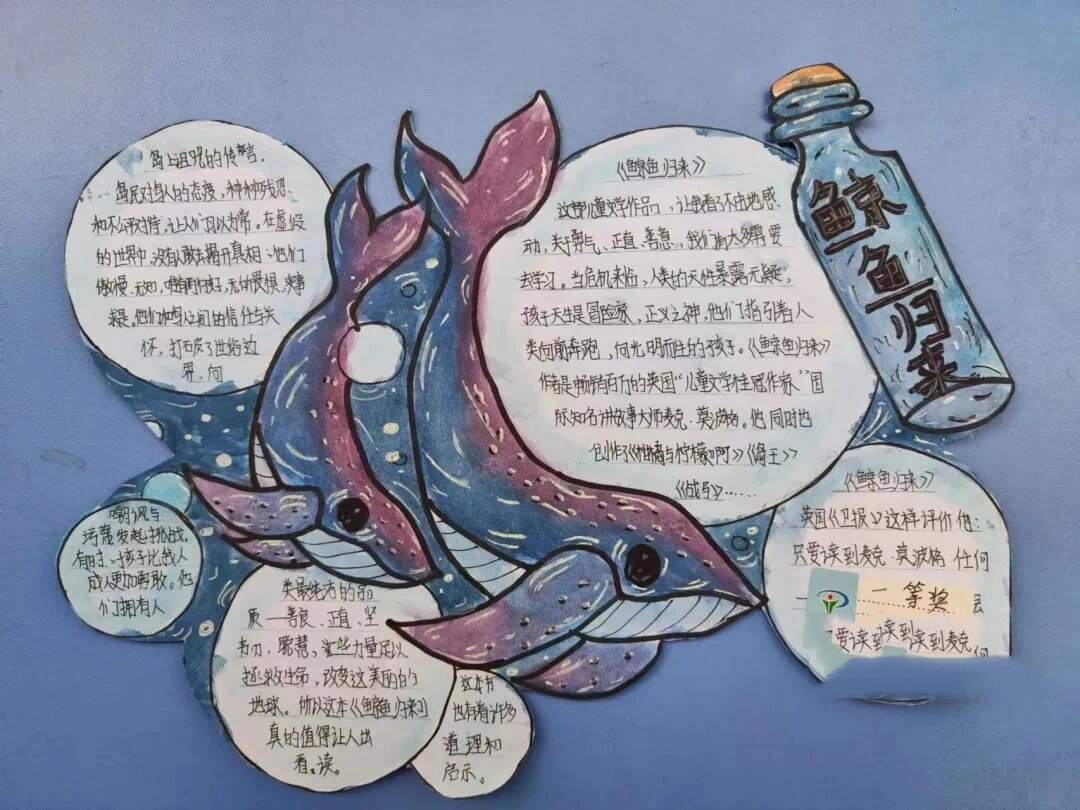 岛上诅咒的传言.
岛民对鸟人的态度,种种残忍
和不公平对待,让人们习以为常。在虚假
的世界中,没有人敢去揭开真相,他们
傲慢、无知、
他们鸟人之间的信任与关
怀,打破了世俗边
界,向
嘲讽与
污蔑发起挑战,
有时,孩子比成人
成人更加勇敢。他
们拥有人
类最纯洁的品
质—善良、正直、坚
韧、聪慧,这些力量足以
拯救生命,改变这美丽的
地球。所以这本《鲸鱼归来》
真的值得让人出
看、读。
这本书
也有着许多
道理和
启示。
《鲸鱼归来》
这部儿童文学作品,让我看了不由地感
动,关于勇气、正直、善意,我们有太多需要
去学习。当危机来临,人类的天性暴露无疑,
孩子天生是冒险家,正义之神,他们指引着人
类向前奔跑,向光明而生的孩子。《鲸鱼归来》
作者是畅销百万的英国“儿童文学桂冠作家”国
际知名讲故事大师麦克·莫波格。他同时也
创作了《柑橘与柠檬啊》《岛王》
《战马》……
鲸鱼归来
《鲸鱼归来》
英国《卫报》这样评价他:
只要读到麦克·莫波格任何
一等奖
要读到读到读到麦克
何